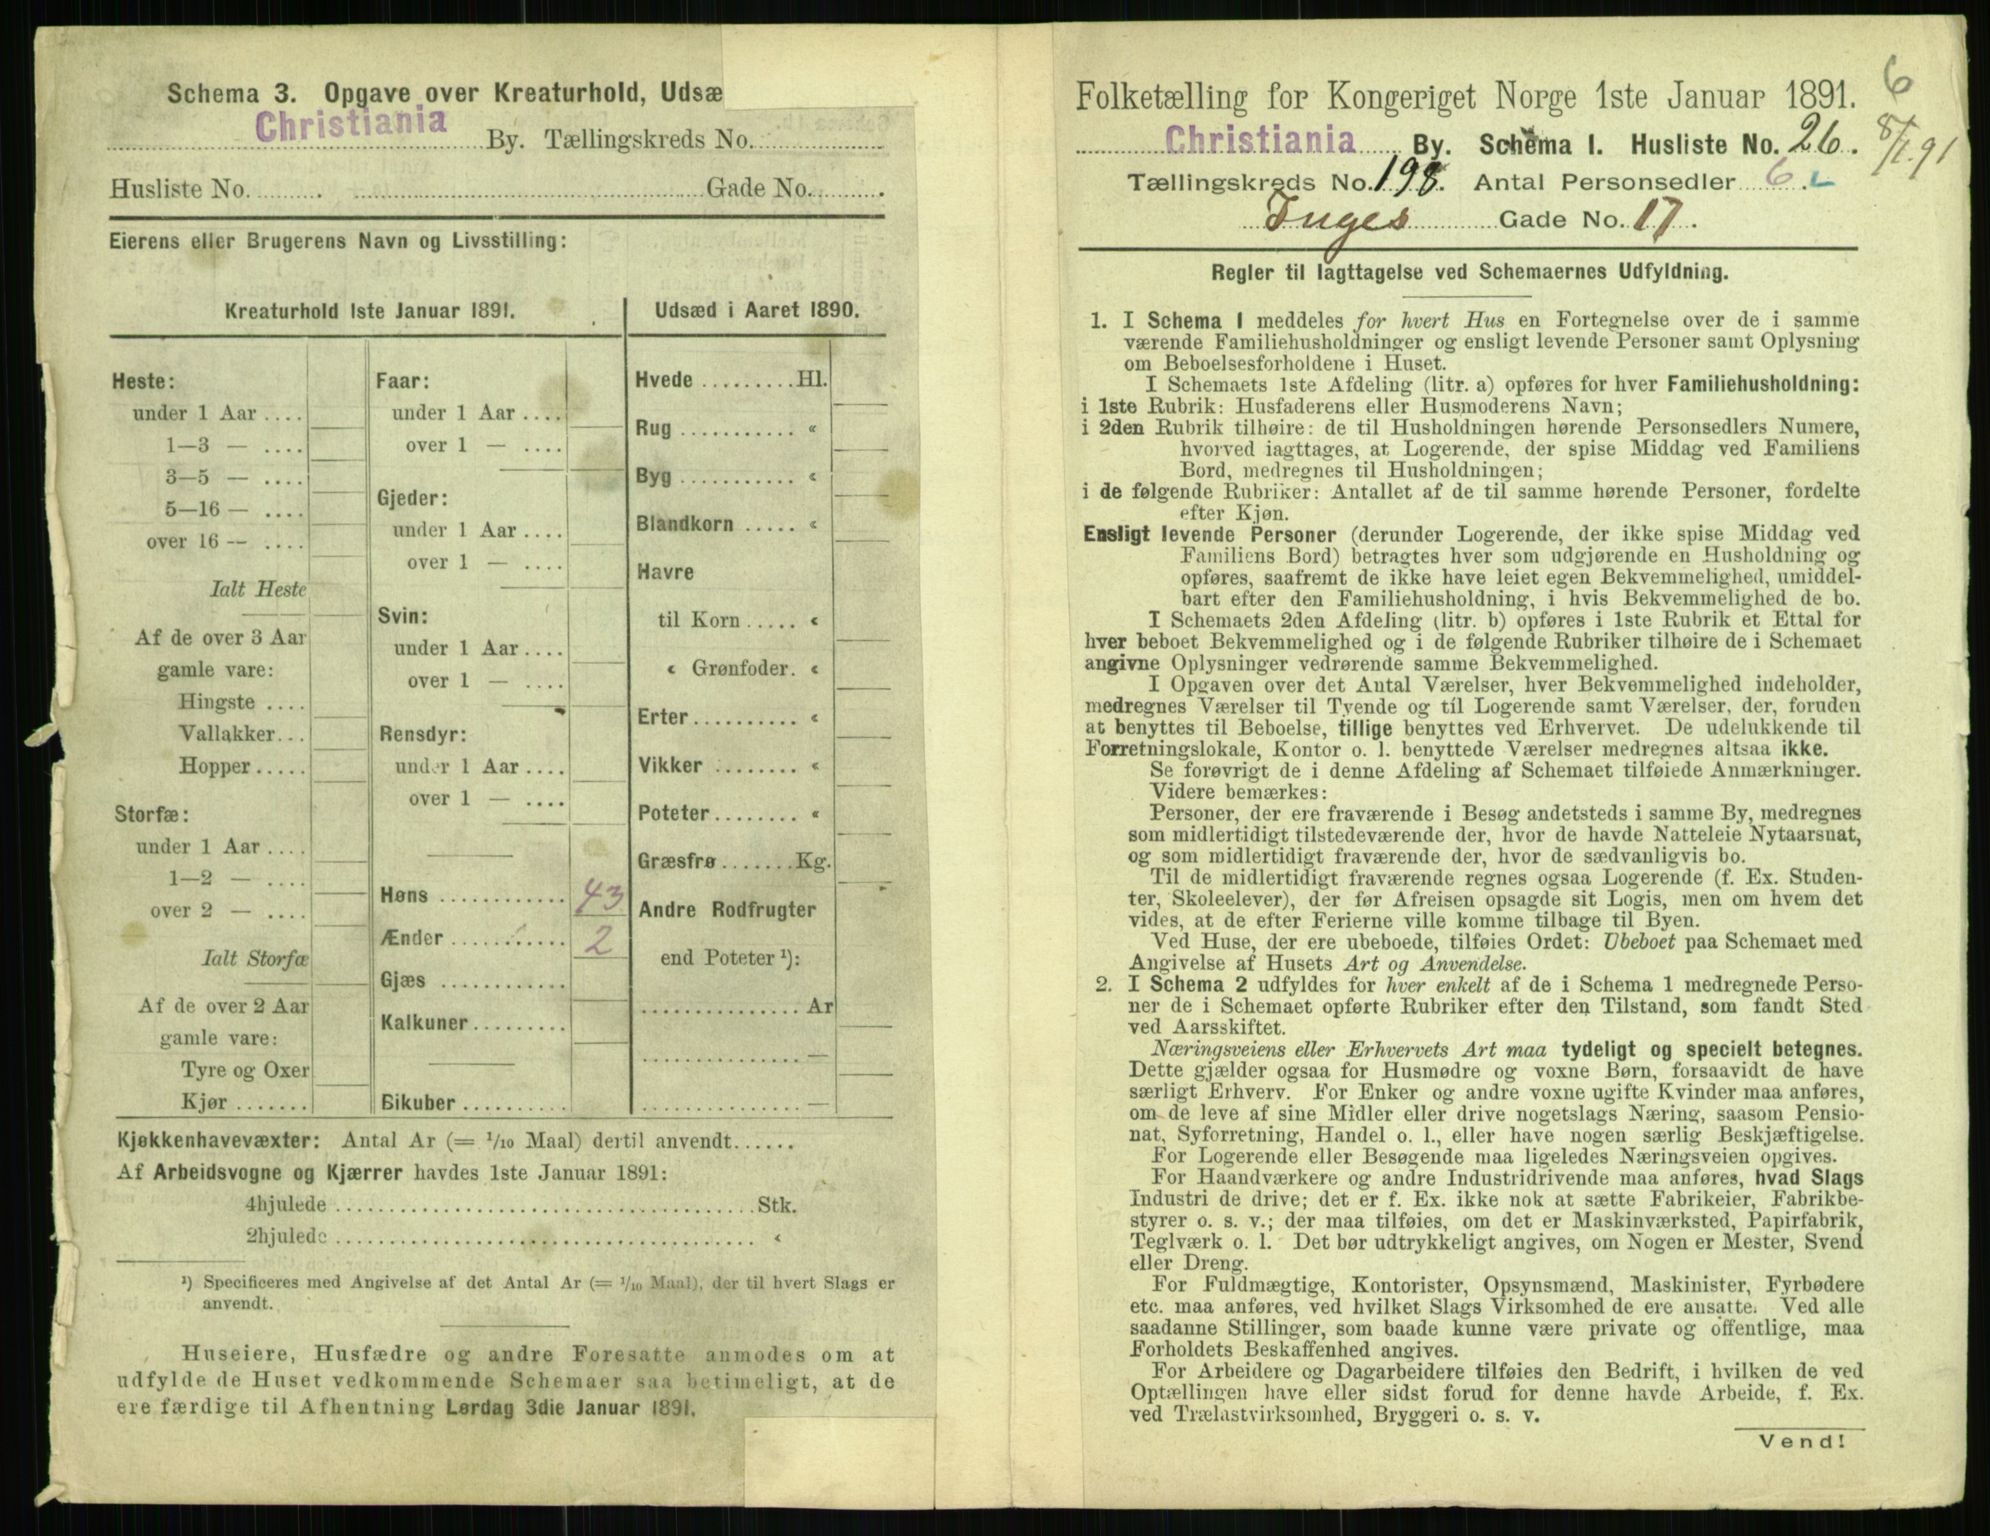 Schema 3. Opgave over Kreaturhold, Udsæ
Christiania By. Tællingskreds No.
Husliste No. Gade No.
Eierens eller Brugerens Navn og Livsstilling:
Kreaturhold 1ste Januar 1891.
Heste:
under 1 Aar ....
1—3 — ....
3—5 — ....
5—16 — ....
over 16 — ....
Ialt Heste
Af de over 3 Aar
gamle vare:
Hingste ....
Vallakker...
Hopper .....
Storfæ:
under 1 Aar ....
1—2 — ....
over 2 — ....
Ialt Storfæ
Af de over 2 Aar
gamle vare:
Tyre og Oxer
Kjør .......
Faar:
under 1 Aar ....
over 1 — ....
Gjeder:
under 1 Aar ....
over 1 — ....
Svin:
under 1 Aar ....
over 1 — ....
Rensdyr:
under 1 Aar ....
over 1 — ....
Høns ............ 43
Ænder ........... 2
Gjæs ............
Kalkuner .........
Bikuber ..........
Udsæd i Aaret 1890.
Hvede .........Hl.
Rug ........... «
Byg ........... «
Blandkorn ..... «
Havre
til Korn ..... «
« Grønfoder. «
Erter.......... «
Vikker ........ «
Poteter........ «
Græsfrø .......Kg.
Andre Rodfrugter
end Poteter ¹):
............... Ar
............... —
............... —
Kjøkkenhavevæxter: Antal Ar (= 1/10 Maal) dertil anvendt......
Af Arbeidsvogne og Kjærrer havdes 1ste Januar 1891:
4hjulede ....................................... Stk.
2hjulede ....................................... «
¹) Specificeres med Angivelse af det Antal Ar (= 1/10 Maal), der til hvert Slags er
anvendt.
Huseiere, Husfædre og andre Foresatte anmodes om at
udfylde de Huset vedkommende Schemaer saa betimeligt, at de
ere færdige til Afhentning Lørdag 3die Januar 1891.
6
8/1.91
Folketælling for Kongeriget Norge 1ste Januar 1891.
Christiania By. Schema I. Husliste No. 26.
Tællingskreds No. 198. Antal Personsedler 6.
Inges Gade No. 17.
Regler til Iagttagelse ved Schemaernes Udfyldning.
1. I Schema I meddeles for hvert Hus en Fortegnelse over de i samme
værende Familiehusholdninger og ensligt levende Personer samt Oplysning
om Beboelsesforholdene i Huset.
I Schemaets 1ste Afdeling (litr. a) opføres for hver Familiehusholdning:
i 1ste Rubrik: Husfaderens eller Husmoderens Navn;
i 2den Rubrik tilhøire: de til Husholdningen hørende Personsedlers Numere,
hvorved iagttages, at Logerende, der spise Middag ved Familiens
Bord, medregnes til Husholdningen;
i de følgende Rubriker: Antallet af de til samme hørende Personer, fordelte
efter Kjøn.
Ensligt levende Personer (derunder Logerende, der ikke spise Middag ved
Familiens Bord) betragtes hver som udgjørende en Husholdning og
opføres, saafremt de ikke have leiet egen Bekvemmelighed, umiddel-
bart efter den Familiehusholdning, i hvis Bekvemmelighed de bo.
I Schemaets 2den Afdeling (litr. b) opføres i 1ste Rubrik et Ettal for
hver beboet Bekvemmelighed og i de følgende Rubriker tilhøire de i Schemaet
angivne Oplysninger vedrørende samme Bekvemmelighed.
I Opgaven over det Antal Værelser, hver Bekvemmelighed indeholder,
medregnes Værelser til Tyende og til Logerende samt Værelser, der, foruden
at benyttes til Beboelse, tillige benyttes ved Erhvervet. De udelukkende til
Forretningslokale, Kontor o. l. benyttede Værelser medregnes altsaa ikke.
Se forøvrigt de i denne Afdeling af Schemaet tilføiede Anmærkninger.
Videre bemærkes:
Personer, der ere fraværende i Besøg andetsteds i samme By, medregnes
som midlertidigt tilstedeværende der, hvor de havde Natteleie Nytaarsnat,
og som midlertidigt fraværende der, hvor de sædvanligvis bo.
Til de midlertidigt fraværende regnes ogsaa Logerende (f. Ex. Studen-
ter, Skoleelever), der før Afreisen opsagde sit Logis, men om hvem det
vides, at de efter Ferierne ville komme tilbage til Byen.
Ved Huse, der ere ubeboede, tilføies Ordet: Ubeboet paa Schemaet med
Angivelse af Husets Art og Anvendelse.
2. I Schema 2 udfyldes for hver enkelt af de i Schema 1 medregnede Perso-
ner de i Schemaet opførte Rubriker efter den Tilstand, som fandt Sted
ved Aarsskiftet.
Næringsveiens eller Erhvervets Art maa tydeligt og specielt betegnes.
Dette gjælder ogsaa for Husmødre og voxne Børn, forsaavidt de have
særligt Erhverv. For Enker og andre voxne ugifte Kvinder maa anføres,
om de leve af sine Midler eller drive nogetslags Næring, saasom Pensio-
nat, Syforretning, Handel o. l., eller have nogen særlig Beskjæftigelse.
For Logerende eller Besøgende maa ligeledes Næringsveien opgives.
For Haandværkere og andre Industridrivende maa anføres, hvad Slags
Industri de drive; det er f. Ex. ikke nok at sætte Fabrikeier, Fabrikbe-
styrer o. s. v.; der maa tilføies, om det er Maskinværksted, Papirfabrik,
Teglværk o. l. Det bør udtrykkeligt angives, om Nogen er Mester, Svend
eller Dreng.
For Fuldmægtige, Kontorister, Opsynsmænd, Maskinister, Fyrbødere
etc. maa anføres, ved hvilket Slags Virksomhed de ere ansatte. Ved alle
saadanne Stillinger, som baade kunne være private og offentlige, maa
Forholdets Beskaffenhed angives.
For Arbeidere og Dagarbeidere tilføies den Bedrift, i hvilken de ved
Optællingen have eller sidst forud for denne havde Arbeide, f. Ex.
ved Trælastvirksomhed, Bryggeri o. s. v.
Vend!